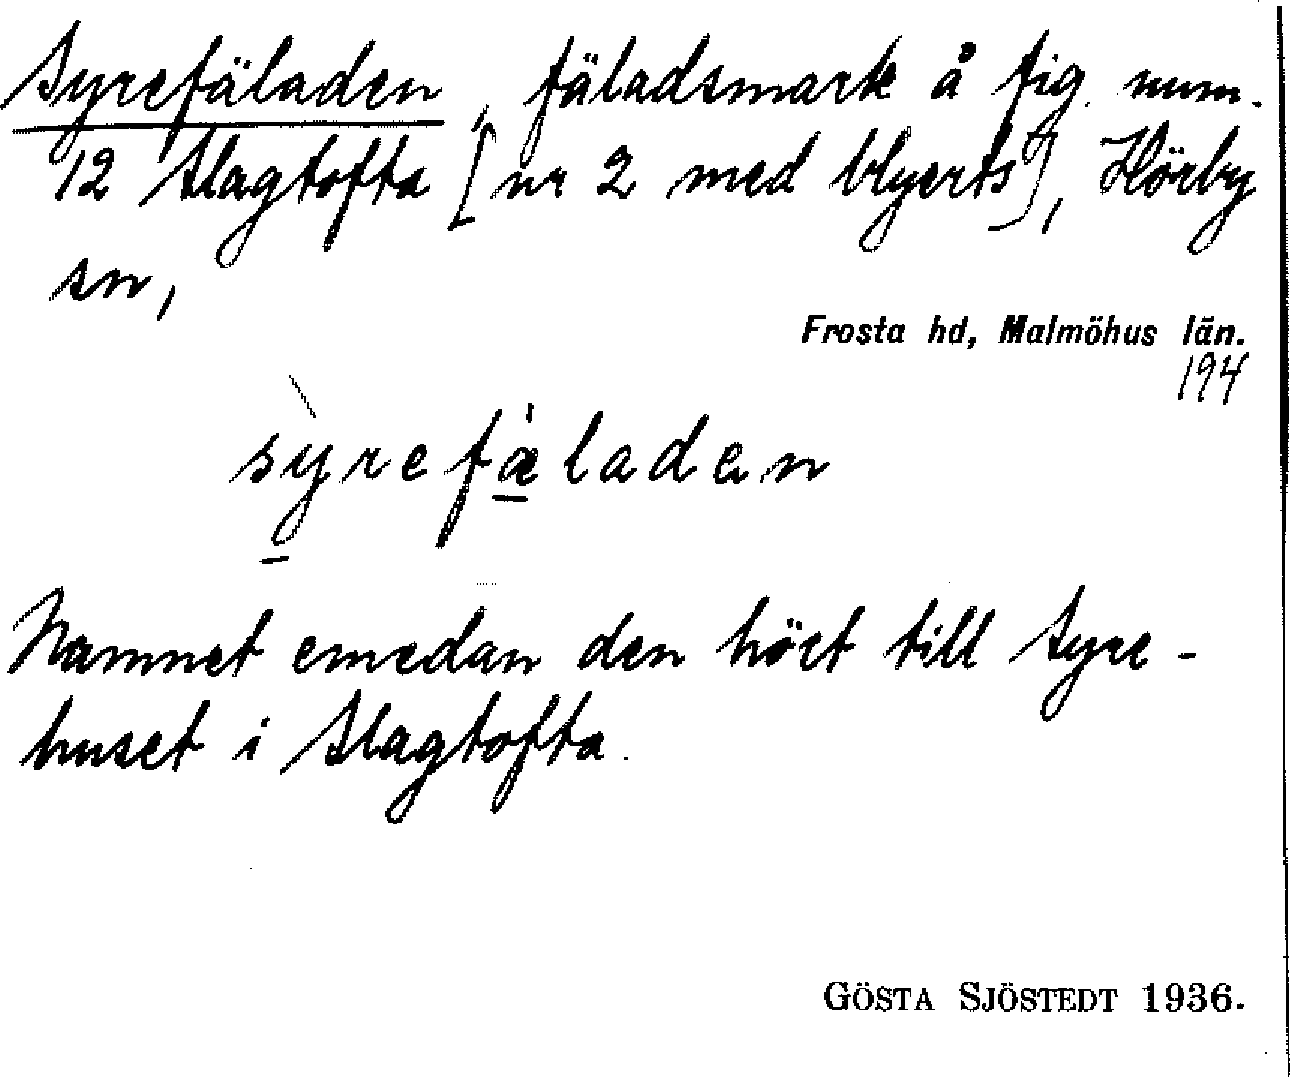 Syrefäladen, fäladsmark å fig. num.
12 Slagtofta [nr 2 med blyerts], Hörby
sn,
Frosta hd, Malmöhus län.
194
sỳrefæ̀laden
Namnet emedan den hört till Syre-
huset i Slagtofta.
GÖSTA SJÖSTEDT 1936.